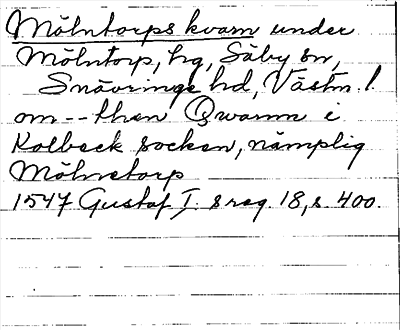 Mölntorps kvarn under
Mölntorp, hg, Säby sn,
Snävringe hd, Västm. l.
om -- then Qwarnn i
Kolbeck socken, nämplig
Mölnetorp
1547 Gustaf I:s reg. 18, s. 400.